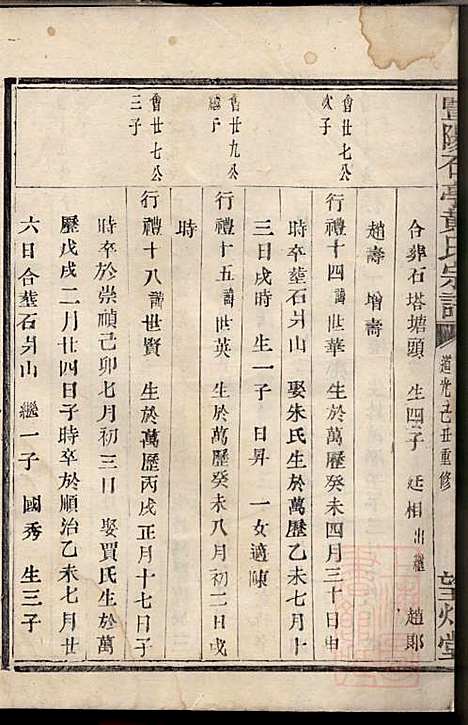 豐陽石亭黃氏宗譜
道光己丑重修
望烟堂
合葬石塔塘頭 生四子 廷相出繼 趙郎
趙壽 增壽
會廿七公
次子
行禮十四諱世華 生於萬歷癸未四月三十日申
時卒葬石爿山 娶朱氏生於萬歷乙未七月十
三日戌時 生一子 日昇 一女適陳
會廿九公
繼子
行禮十五諱世英 生於萬歷癸未八月初二日戌
時
會廿七公
三子
行禮十八諱世賢 生於萬歷丙戌正月十七日子
時卒於崇禎己卯七月初三日 娶賈氏生於萬
歷戊戌二月廿四日子時卒於順治乙未七月廿
六日合葬石爿山 繼一子 國秀 生三子